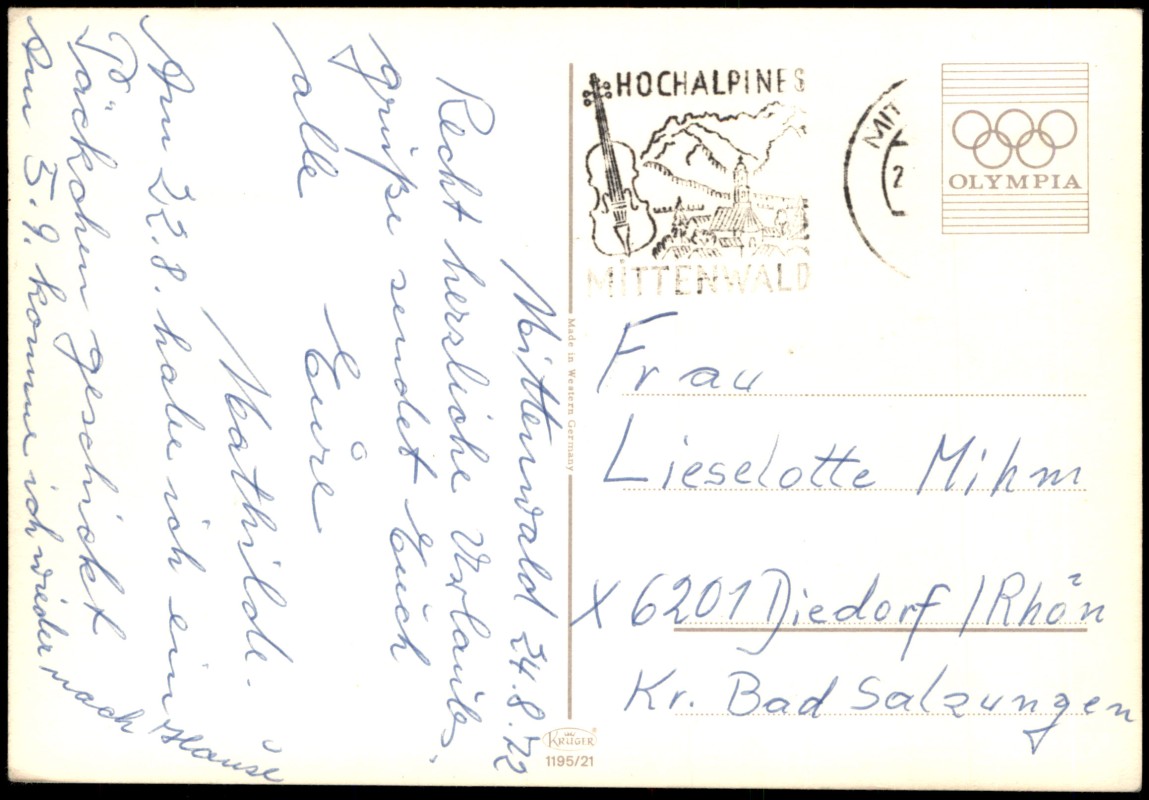 Mittenwald 24.8.72
Recht herzliche Urlaubs-
grüße sendet Euch
alle Eure
Mathilde.
Am 22.8. habe ich ein
Päckchen geschickt
Am 5.9. komme ich wieder nach
Hause
HOCHALPINES
MITTENWALD
MIT
2
OLYMPIA
Made in Western Germany
Frau
Lieselotte Mihm
X 6201 Diedorf / Rhön
Kr. Bad Salzungen
KRÜGER
1195/21